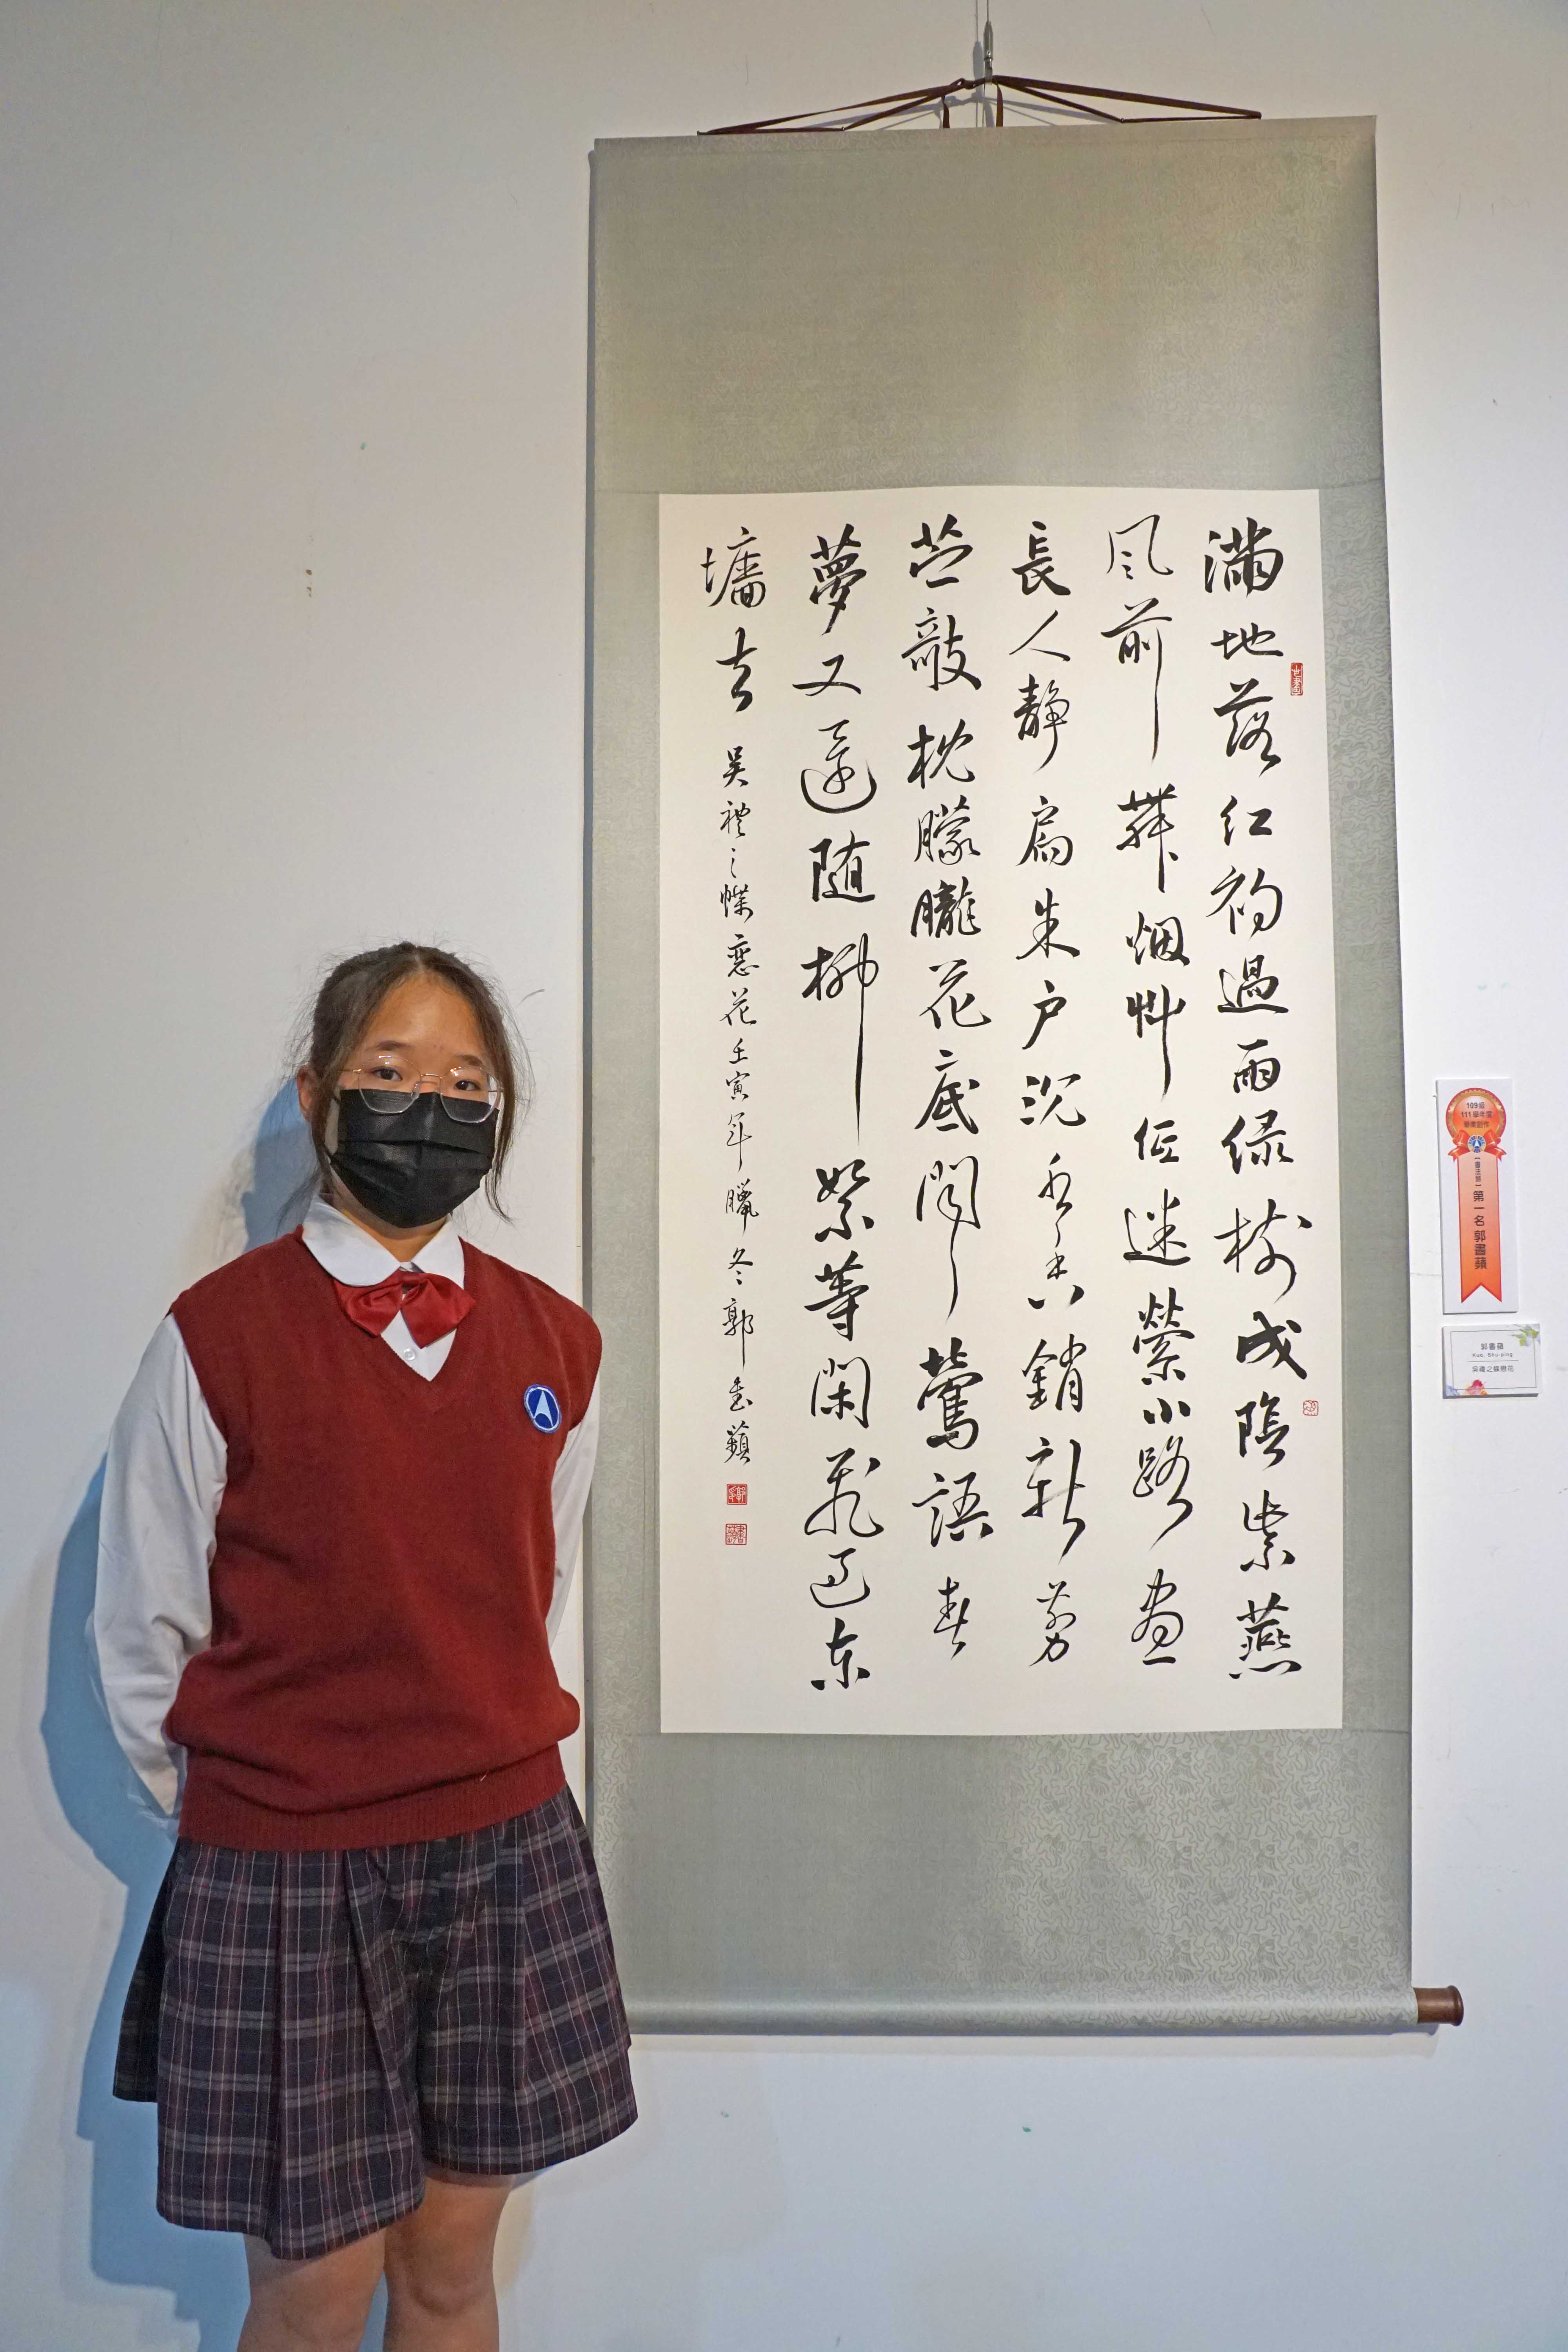 滿地落紅初過雨綠樹成陰紫燕
風前舞烟艸低迷縈小路晝
長人靜扃朱戶沉香銷新剪
苎敲枕朦朧花底聞鶯語春
夢又還隨柳絮等閑飛過東
墻去
吳禮之蝶戀花壬寅年臘冬郭書蘋
109級
111學年度
畢業創作
書法類
第一名 郭書蘋
郭書蘋
Kuo, Shu-ping
吳禮之蝶戀花